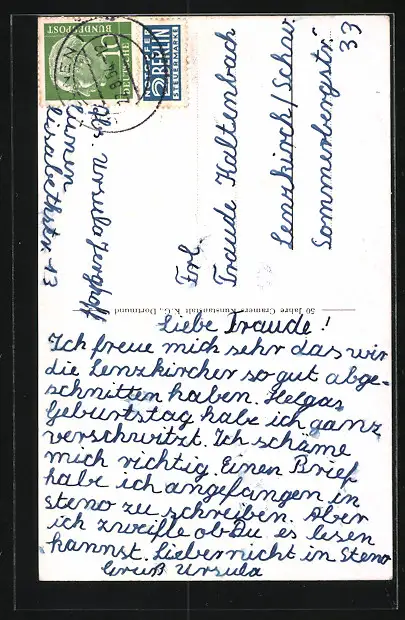 DEUTSCHE
BUNDESPOST
10
NOTOPFER
2 BERLIN
STEUERMARKE
Abs. Ursula
Lünen
Elisabethstr. 13
Frl.
Traude Kaltenbach
Lenzkirch/Schw.
Sommerbergstr.
33
50 Jahre Cramers Kunstanstalt K.G., Dortmund
Liebe Traude!
Ich freue mich sehr das wir
die Lenzkircher so gut abge-
schnitten haben. Helgas
Geburtstag habe ich ganz
verschwitzt. Ich schäme
mich richtig. Einen Brief
habe ich angefangen in
steno zu schreiben. Aber
ich zweifle ob Du es lesen
kannst. Lieber nicht in Steno
Gruß Ursula